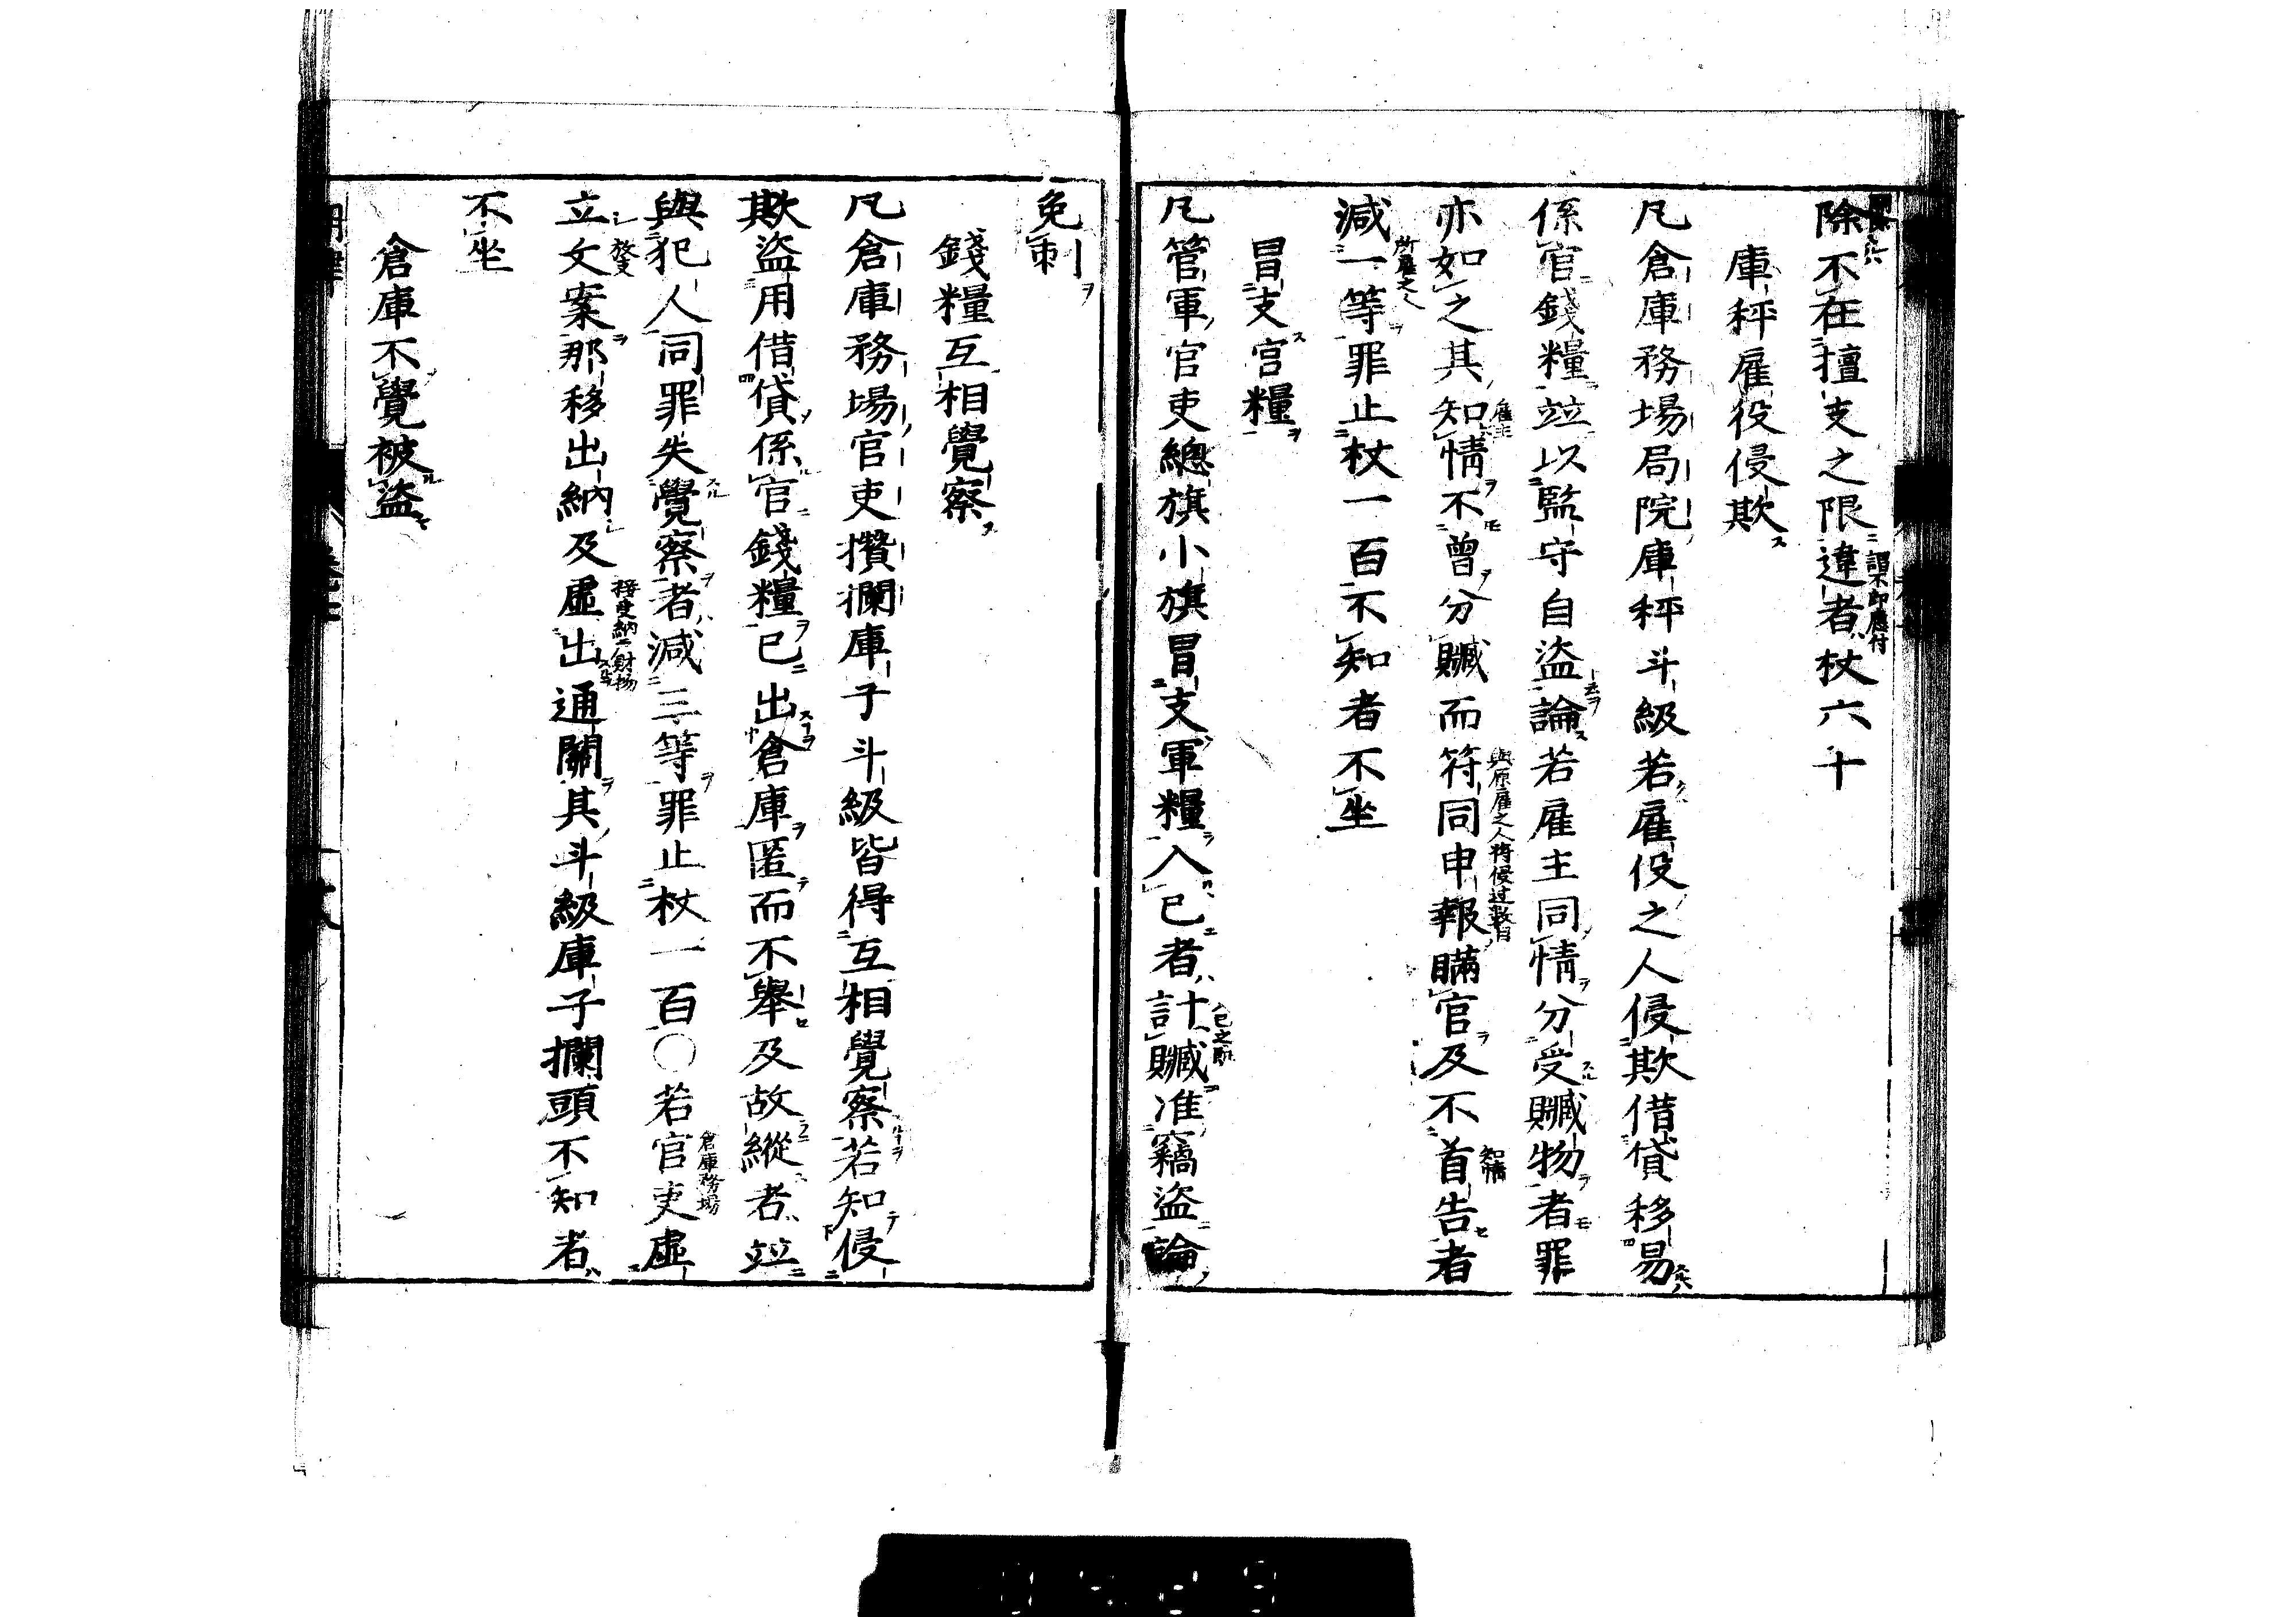 除不在擅支之限違者杖六十
謂不即應付
庫秤雇役侵欺
凡倉庫務場局院庫秤斗級若雇役之人侵欺借貸移易
係官錢糧竝以監守自盜論若雇主同情分受贓物者罪
亦如之其知情不曾分贓而符同申報瞞官及不首告者
雇主
與原雇之人將侵過數目
知情
減一等罪止杖一百不知者不坐
所雇之人
冒支官糧
凡管軍官吏總旗小旗冒支軍糧入己者計贓准竊盜論
入己之贓
免刺
錢糧互相覺察
凡倉庫務場官吏攢攔庫子斗級皆得互相覺察若知侵
欺盜用借貸係官錢糧已出倉庫匿而不舉及故縱者竝
與犯人同罪失覺察者減三等罪止杖一百○若官吏虛
倉庫務場
立文案那移出納及虛出通關其斗級庫子攔頭不知者
放支
不坐
倉庫不覺被盜